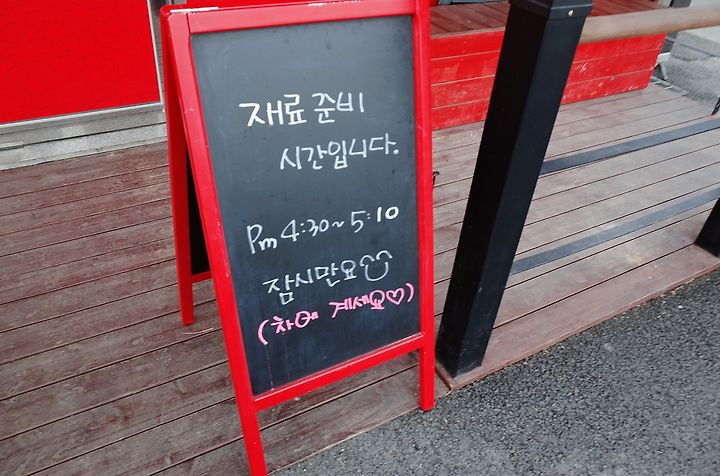 재료 준비
시간입니다.
Pm 4:30~5:10
잠시만요
(차에 계세요♡)